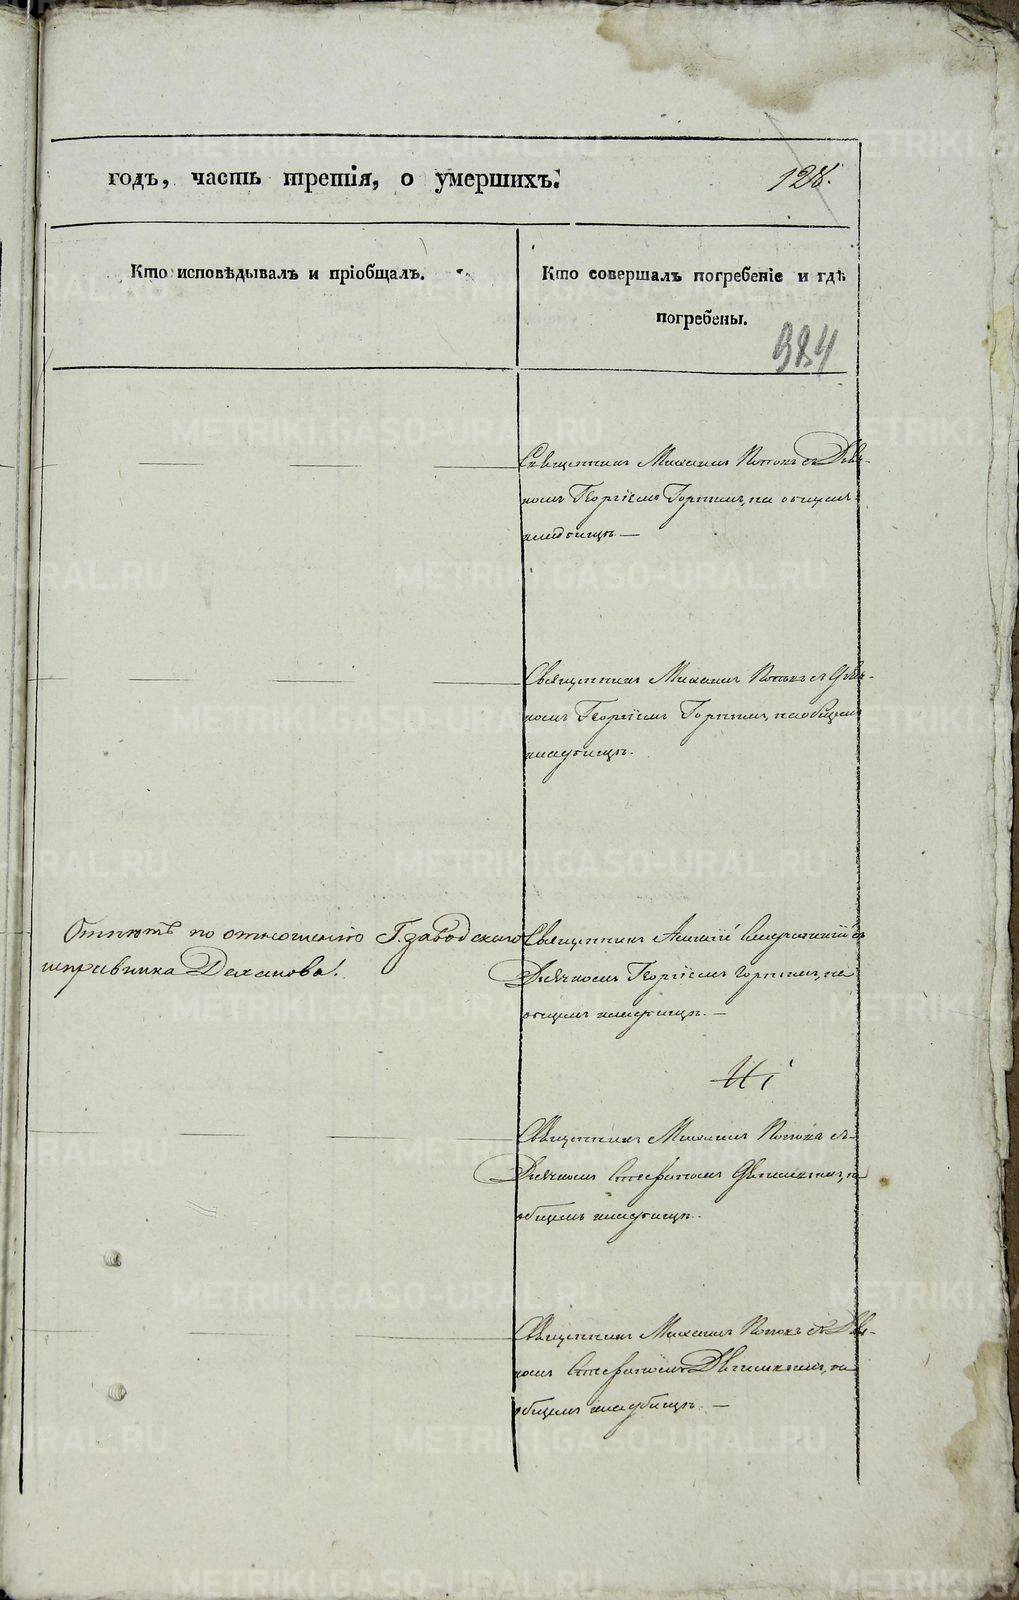 годъ, часть третія, о умершихъ.
128.
Кто исповѣдывалъ и пріобщалъ.
Кто совершалъ погребеніе и гдѣ
погребены.
384
Священникъ Михаилъ Поповъ съ Дьяч-
комъ Георгіемъ на общемъ
кладбищѣ. —
Священникъ Михаилъ Поповъ съ Дьяч-
комъ Георгіемъ на общемъ
кладбищѣ.
Отпѣтъ по отношенію Г. заводскаго
исправника
Священникъ
Дьячкомъ Георгіемъ на
общемъ кладбищѣ. —
Священникъ Михаилъ Поповъ съ
Дьячкомъ Стефаномъ на
общемъ кладбищѣ.
Священникъ Михаилъ Поповъ съ Дьяч-
комъ Стефаномъ на
общемъ кладбищѣ. —
METRIKI.GASO-URAL.RU